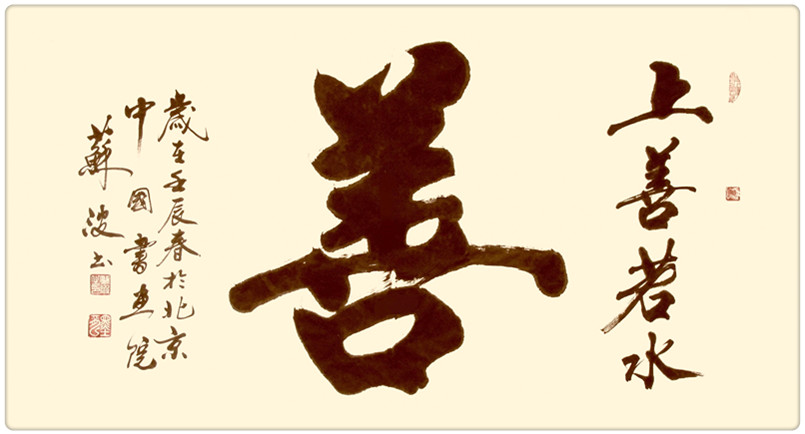 上善若水
善
歲在壬辰春於北京
中國書畫院
蘇波書